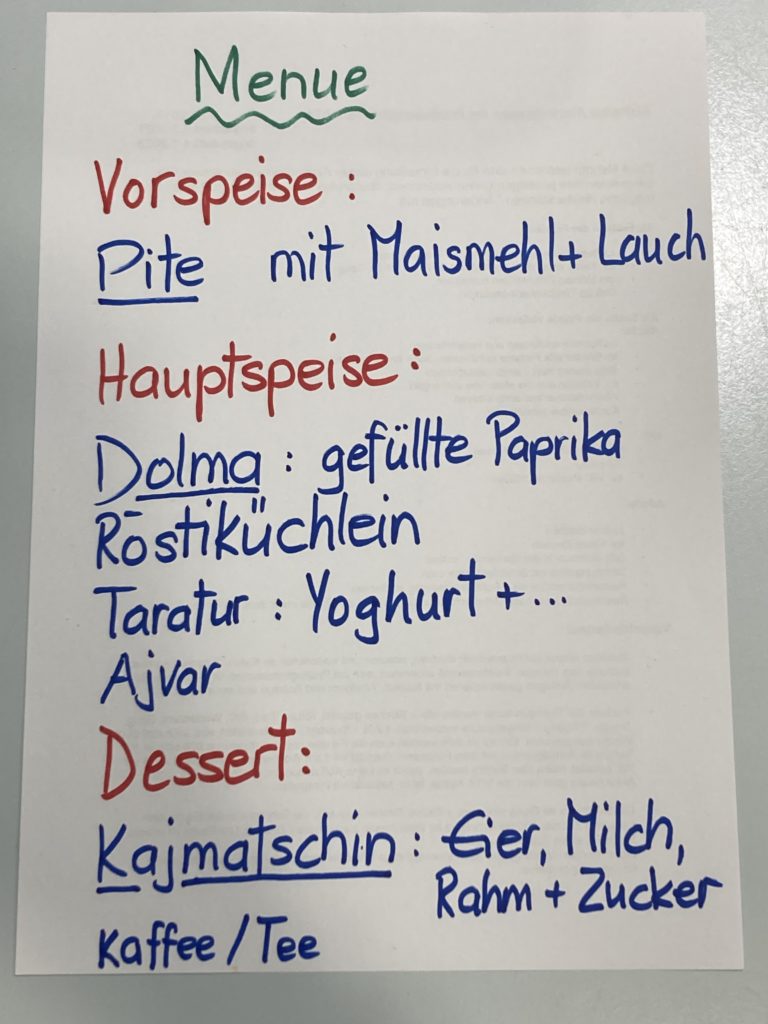 Menue
Vorspeise :
Pite mit Maismehl + Lauch
Hauptspeise :
Dolma : gefüllte Paprika
Röstiküchlein
Taratur : Yoghurt + ...
Ajvar
Dessert :
Kajmatschin : Eier, Milch,
Rahm + Zucker
Kaffee / Tee